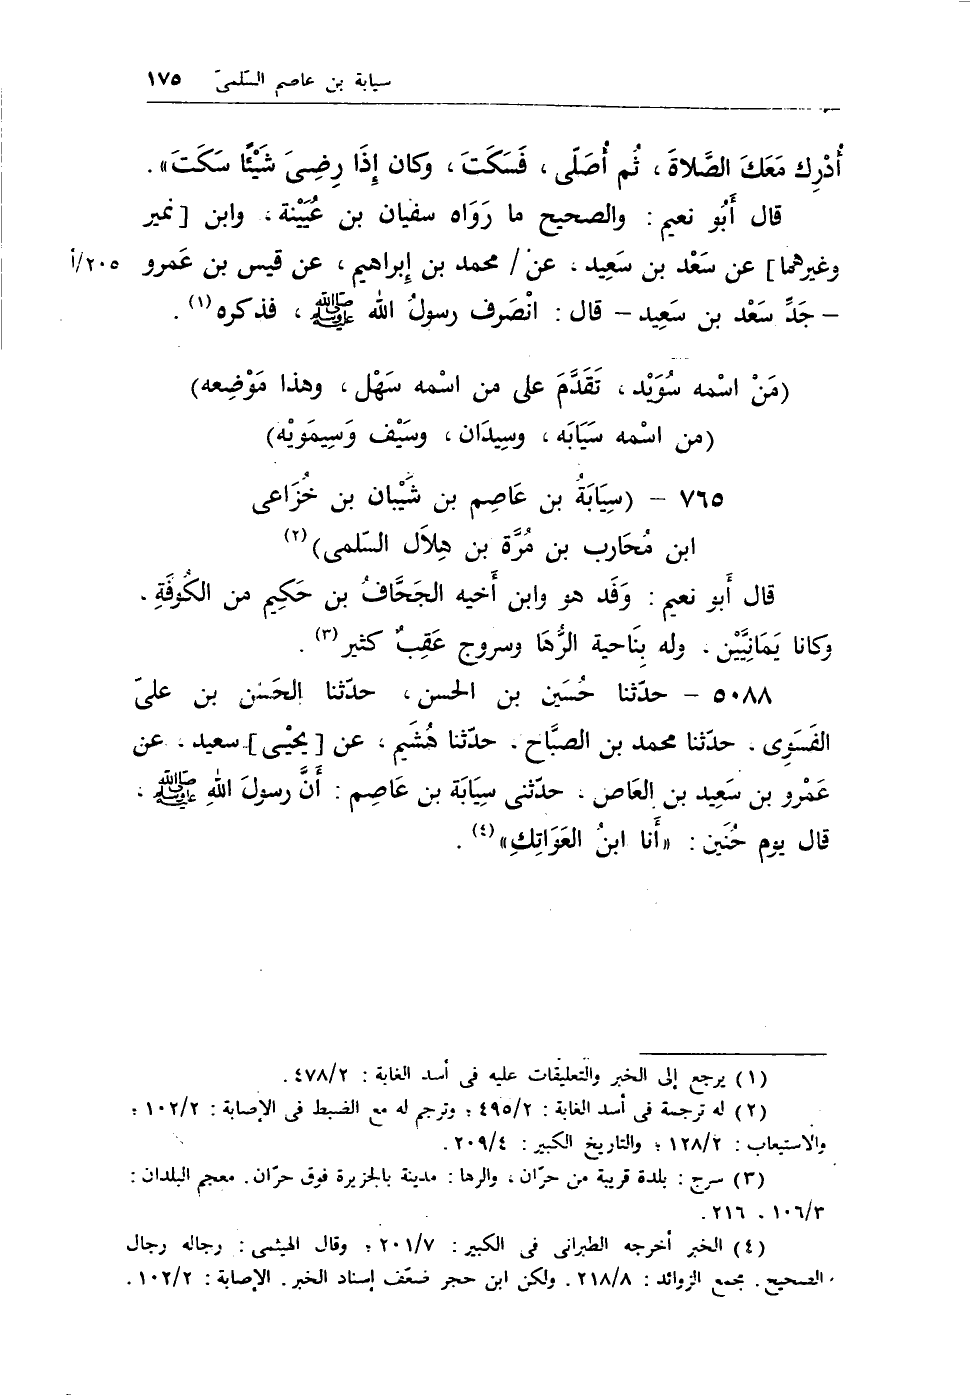 سيابة بن عاصم السّلمىّ ١٧٥
أُدْرِك مَعَكَ الصَّلاةَ ، ثُم أُصَلّى ، فَسَكَتَ ، وكان إِذَا رضِىَ شَيْئًا سَكَتَ» .
قال أَبُو نعيم : والصحيح ما رَوَاه سفيان بن عُيَيْنة ، وابن [نمير
وغيرهما] عن سَعْد بن سَعِيد ، عن / محمد بن إبراهيم ، عن قيس بن عَمرو ٢٠٥/أ
– جَدِّ سَعْد بن سَعِيد – قال : انْصَرف رسولُ الله ﷺ ، فذكره (١) .
(مَنْ اسْمه سُوَيْد ، تَقَدَّمَ على من اسْمه سَهْل ، وهذا مَوْضِعه)
(من اسْمه سَيَابَه ، وسِيدَان ، وسَيْف وَسِيمَويْه)
٧٦٥ – (سِيَابَةُ بن عَاصِم بن شَيْبان بن خُزَاعى
ابن مُحَارب بن مُرَّة بن هِلاَل السّلمى) (٢)
قال أَبو نعيم : وَفَد هو وابن أَخيه الجَحَّافُ بن حَكِيم من الكُوفَةِ .
وكانا يَمَانِيَّيْن ، وله بِنَاحية الرُّهَا وسروج عَقِبٌ كثير (٣) .
٥٠٨٨ – حدّثنا حُسَين بن الحسن ، حدّثنا الحَسَن بن علىّ
الفَسَوِى ، حدّثنا محمد بن الصبَّاح ، حدّثنا هُشَيم ، عن [يحيْى] سعيد ، عن
عَمْرو بن سَعِيد بن العَاص ، حدّثنى سِيَابَة بن عَاصِم : أَنَّ رسولَ اللهِ ﷺ ،
قال يوم حُنَين : «أَنا ابنُ العَوَاتِكِ» (٤) .
(١) يرجع إلى الخبر والتعليقات عليه فى أسد الغابة : ٤٧٨/٢ .
(٢) له ترجمة فى أسد الغابة : ٤٩٥/٢ ؛ وترجم له مع الضبط فى الإصابة : ١٠٢/٢ ؛
والاستيعاب : ١٢٨/٢ ؛ والتاريخ الكبير : ٢٠٩/٤ .
(٣) سرج : بلدة قريبة من حرّان ، والرها : مدينة بالجزيرة فوق حرّان . معجم البلدان :
١٠٦/٣ ، ٢١٦ .
(٤) الخبر أخرجه الطبرانى فى الكبير : ٢٠١/٧ ؛ وقال الهيثمى : رجاله رجال
الصحيح . مجمع الزوائد : ٢١٨/٨ . ولكن ابن حجر ضعّف إسناد الخبر . الإصابة : ١٠٢/٢ .